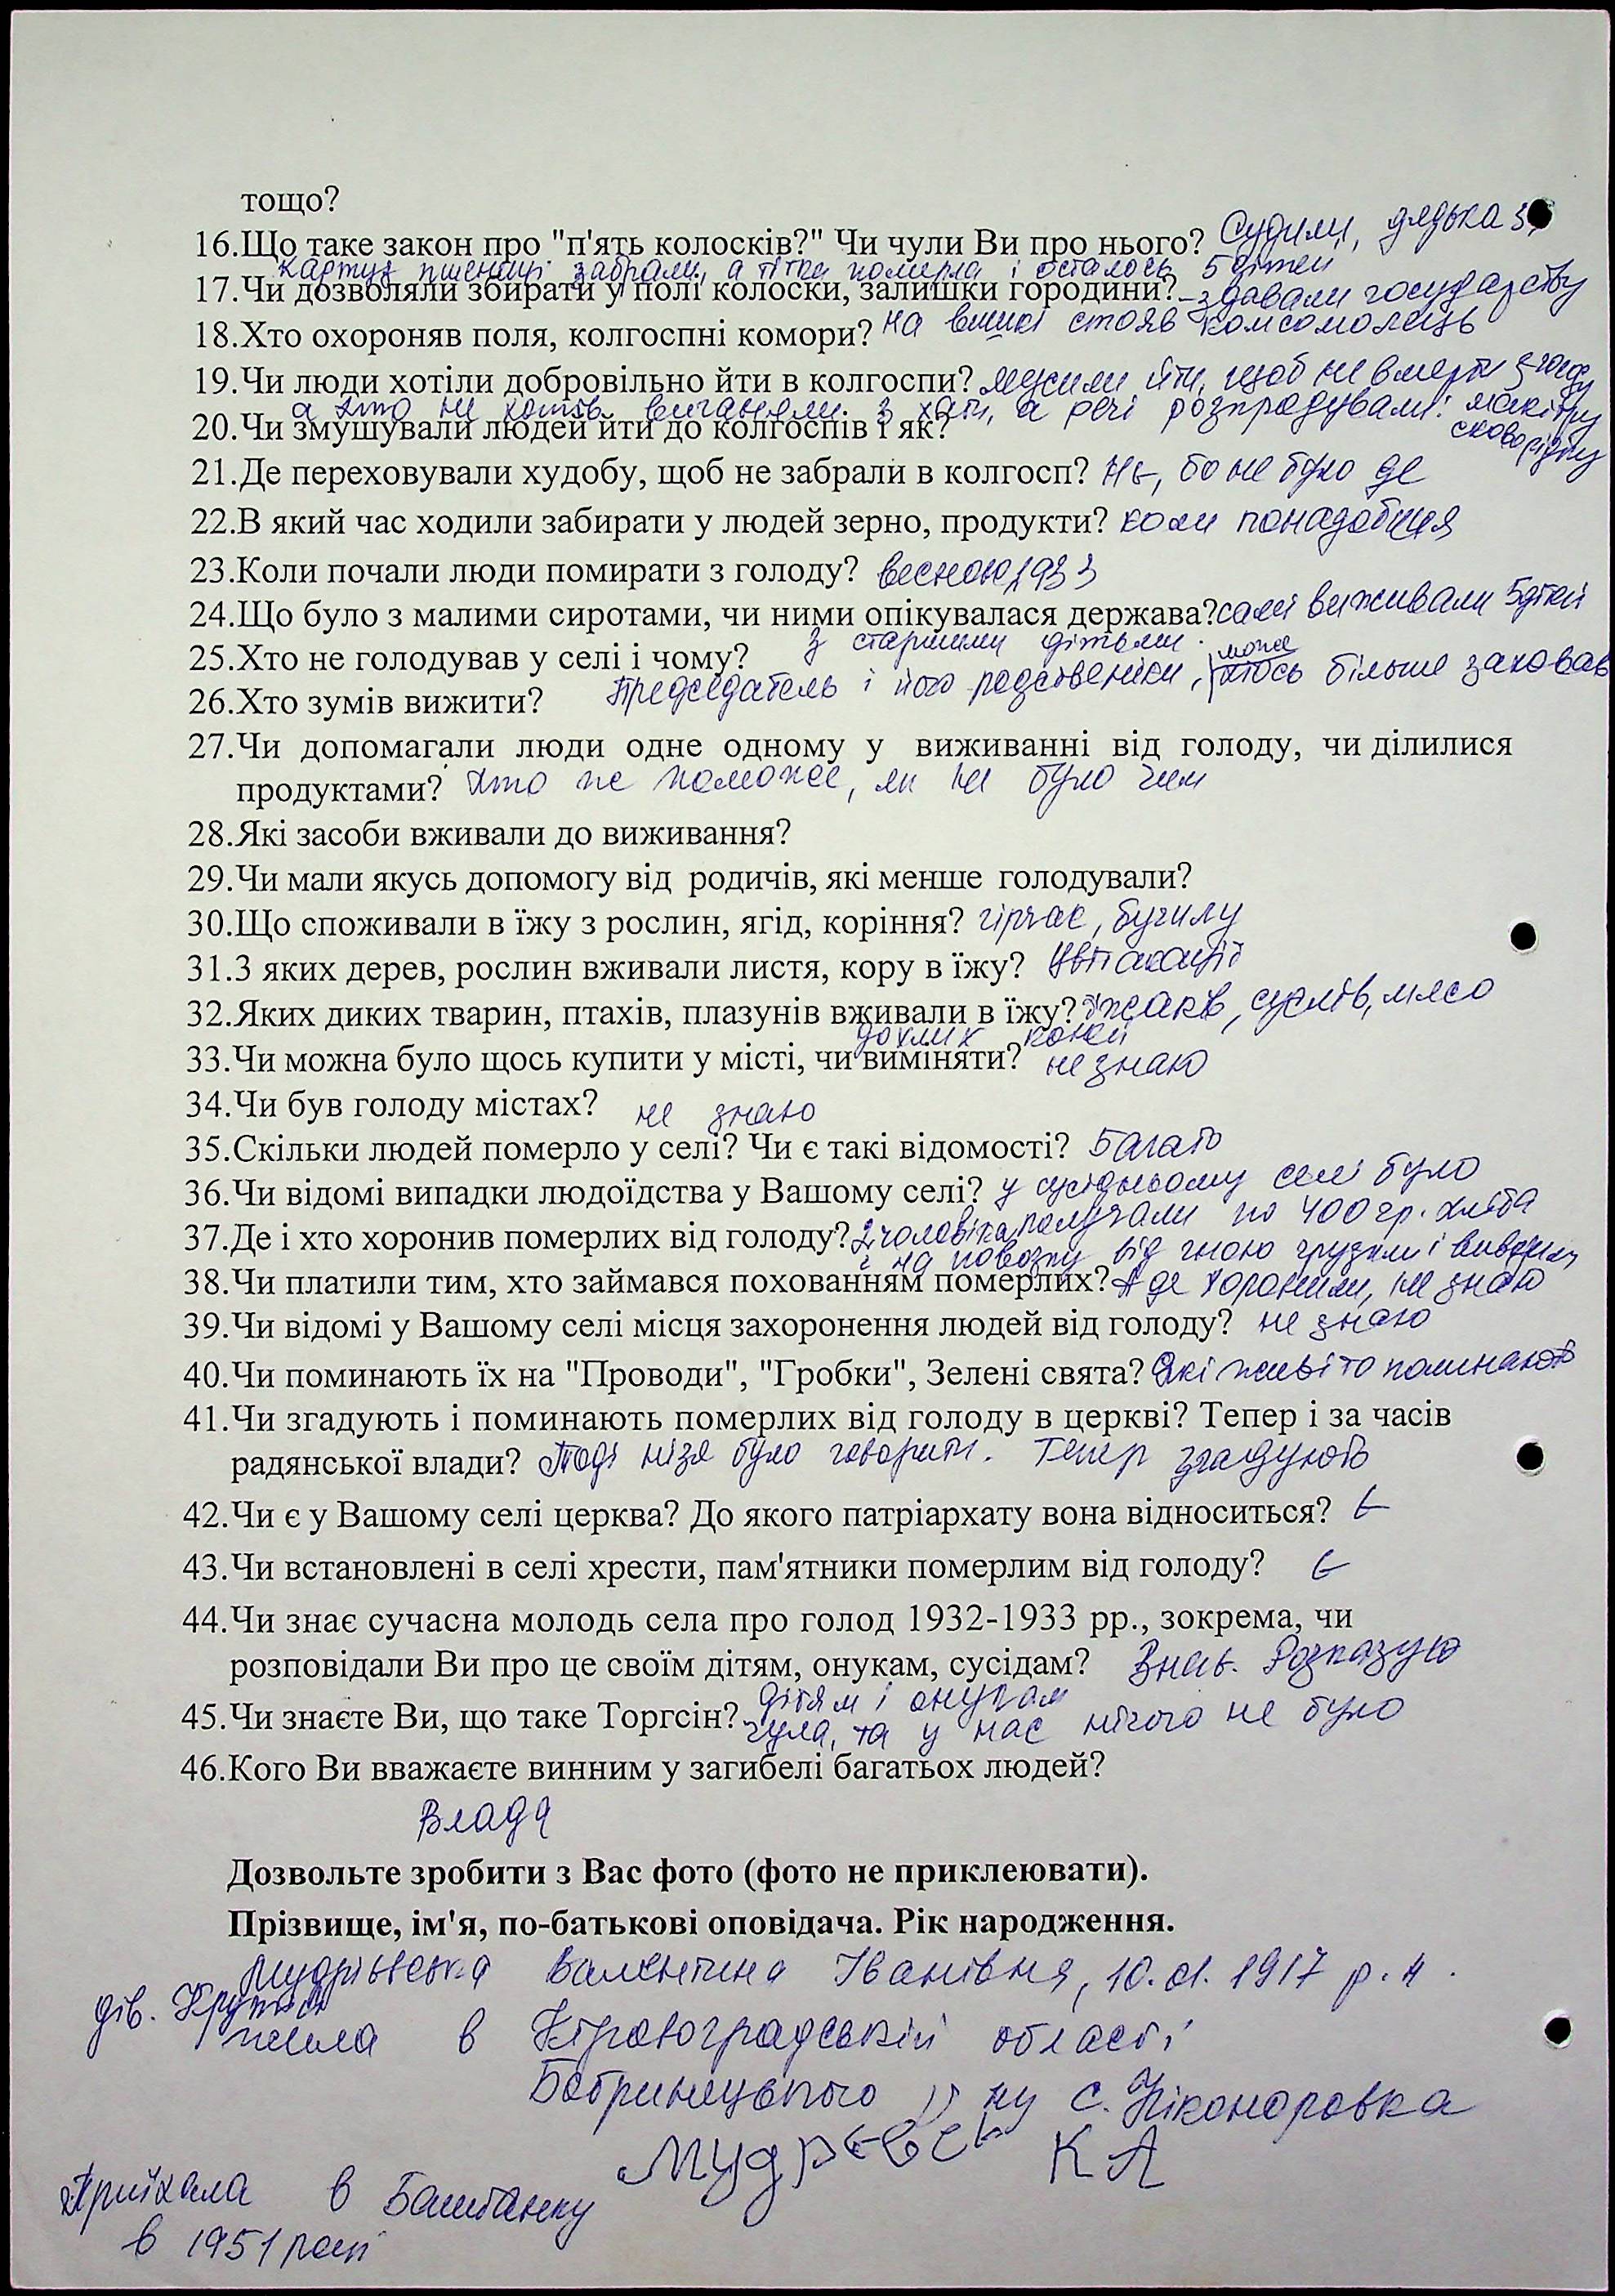 тощо?
16.Що таке закон про "п'ять колосків?" Чи чули Ви про нього? Судили, дядька за
картуз пшениці забрали, а тітка померла і осталось 5 дітей
17.Чи дозволяли збирати у полі колоски, залишки городини? - здавали государству
18.Хто охороняв поля, колгоспні комори? на вишкі стояв комсомолець
19.Чи люди хотіли добровільно йти в колгоспи? мусили йти, щоб не вмерти з голоду
а хто не хотів виганяли з хати, а речі розпродували: макітру
сковорідку
20.Чи змушували людей йти до колгоспів і як?
21.Де переховували худобу, щоб не забрали в колгосп? Нє, бо не було де
22.В який час ходили забирати у людей зерно, продукти? коли понадобиця
23.Коли почали люди помирати з голоду? весною 1933
24.Що було з малими сиротами, чи ними опікувалася держава? самі виживали 5 дітей
з старшими дітьми.
25.Хто не голодував у селі і чому?
може
Председатель і його родственіки, хтось більше заховав
26.Хто зумів вижити?
27.Чи допомагали люди одне одному у виживанні від голоду, чи ділилися
продуктами? Хто же поможе, як не було чим
28.Які засоби вживали до виживання?
29.Чи мали якусь допомогу від родичів, які менше голодували?
30.Що споживали в їжу з рослин, ягід, коріння? гірчак, бугилу
31.З яких дерев, рослин вживали листя, кору в їжу? Цвіт акації
32.Яких диких тварин, птахів, плазунів вживали в їжу? їжаків, суслів, мясо
дохлих коней
33.Чи можна було щось купити у місті, чи виміняти? не знаю
34.Чи був голоду містах? не знаю
35.Скільки людей померло у селі? Чи є такі відомості? Багато
36.Чи відомі випадки людоїдства у Вашому селі? у сусідньому селі було
37.Де і хто хоронив померлих від голоду? 2 чоловіка получали по 400 гр. хліба
і на повозку від гною грузили і вивозили
38.Чи платили тим, хто займався похованням померлих? А де хоронили, не знаю
39.Чи відомі у Вашому селі місця захоронення людей від голоду? не знаю
40.Чи поминають їх на "Проводи", "Гробки", Зелені свята? Які живі то поминають
41.Чи згадують і поминають померлих від голоду в церкві? Тепер і за часів
радянської влади? Тоді нізя було говорити. Тепер згадують
42.Чи є у Вашому селі церква? До якого патріархату вона відноситься? Є
43.Чи встановлені в селі хрести, пам'ятники померлим від голоду? Є
44.Чи знає сучасна молодь села про голод 1932-1933 рр., зокрема, чи
розповідали Ви про це своїм дітям, онукам, сусідам? Знає. Розказую
дітям і онукам
45.Чи знаєте Ви, що таке Торгсін? чула, та у нас нічого не було
46.Кого Ви вважаєте винним у загибелі багатьох людей?
Влада
Дозвольте зробити з Вас фото (фото не приклеювати).
Прізвище, ім'я, по-батькові оповідача. Рік народження.
Мудрієвська Валентина Іванівня, 10.01.1917 р.н.
дів.
жила в Кіровоградській області
Бобринецького р-ну с. Ніконоровка
Мудрєвсь К А
Приїхала в Баштанку
в 1951 році